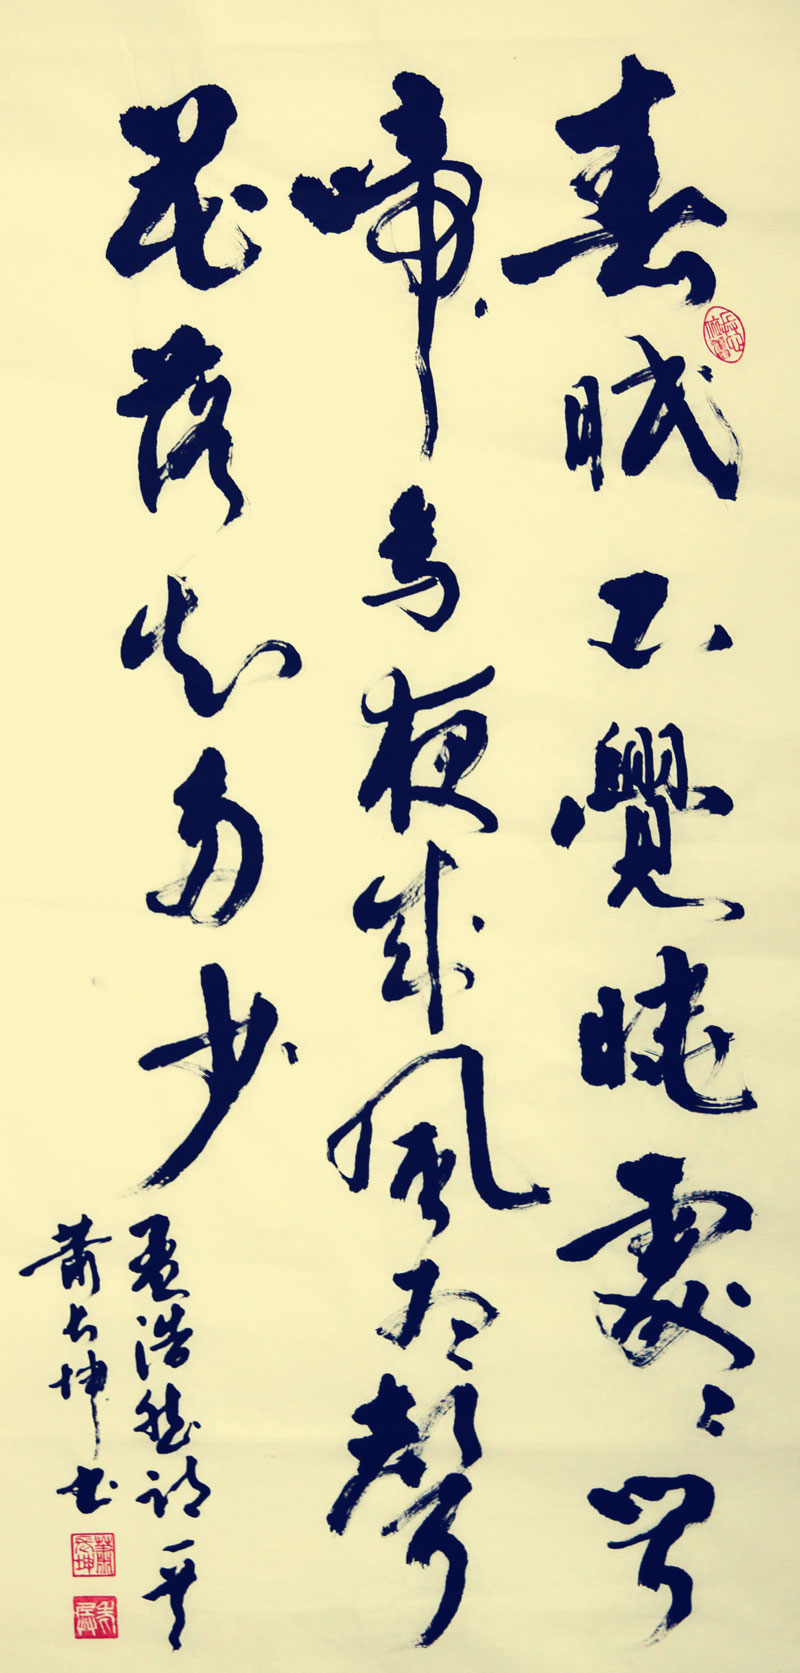 春眠不覺曉處々聞
啼鳥夜來風雨聲
花落知多少
孟浩然詩一首
蕭长坤书